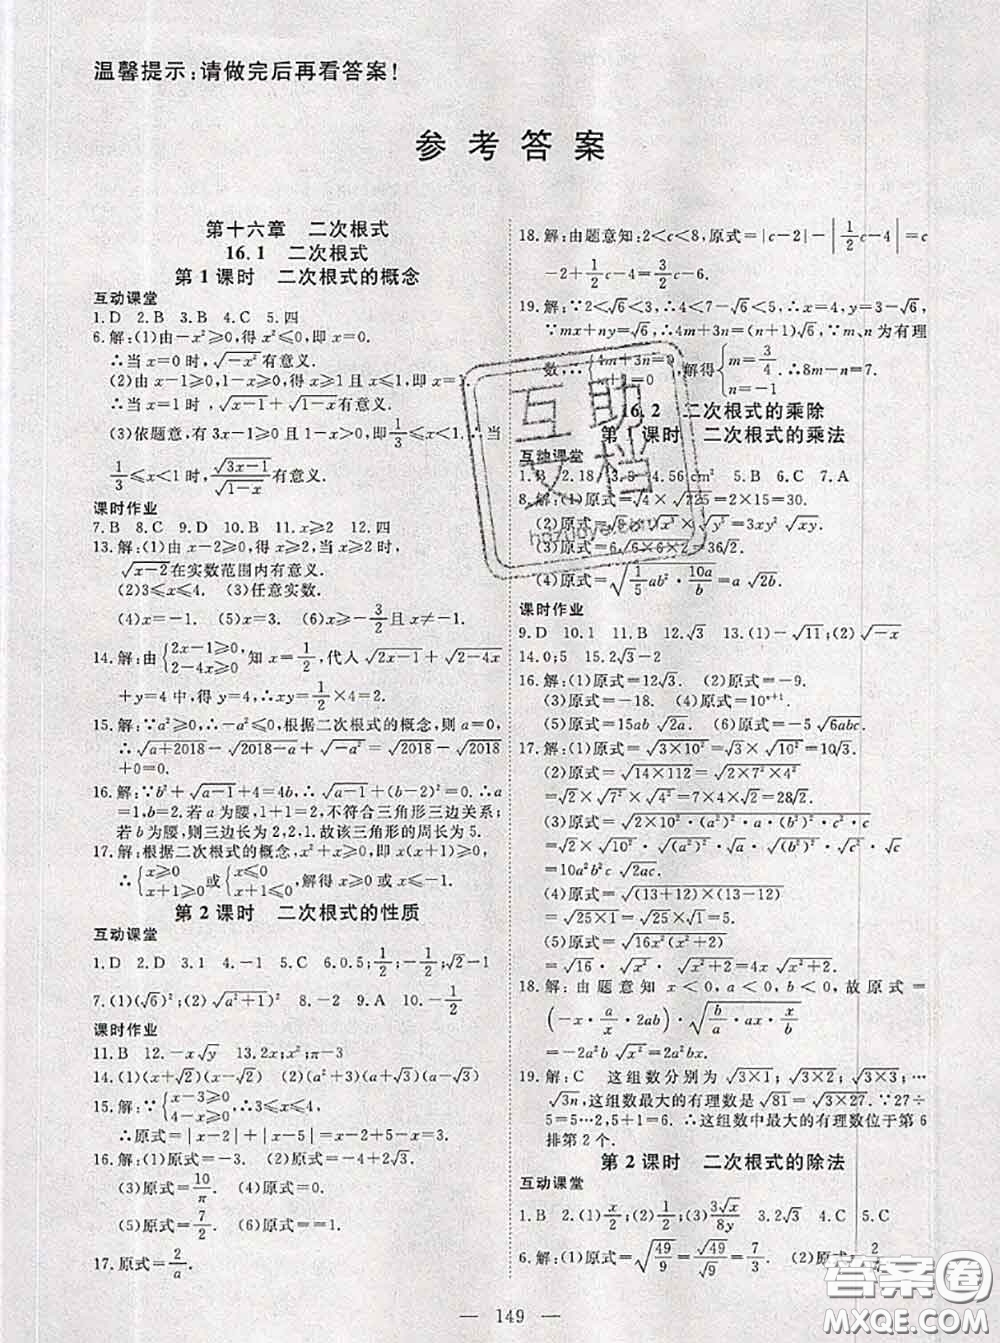 温馨提示:请做完后再看答案!
参考答案
第十六章 二次根式
16.1 二次根式
第1课时 二次根式的概念
互动课堂
1.D 2.B 3.B 4.C 5.四
6.解:(1)由-x²≥0,得x²≤0,即x=0.
∴当x=0时,√(-x²)有意义.
(2)由x-1≥0,1-x≥0,即x=1.
∴当x=1时,√(x-1)+√(1-x)有意义.
(3)依题意,有3x-1≥0且1-x>0,即1/3≤x<1.∴当
1/3≤x<1时,√(3x-1)/√(1-x)有意义.
课时作业
7.B 8.C 9.D 10.B 11.x≥2 12.四
13.解:(1)由x-2≥0,得x≥2.∴当x≥2时,
√(x-2)在实数范围内有意义.
(2)3≤x≤4. (3)任意实数.
(4)x=-1. (5)x≥-1/2且x≠0.
14.解:由{2x-1≥0, 2-4x≥0}知x=1/2,代入√(2x-1)+√(2-4x)
+y=4中,得y=4,∴xy=1/2×4=2.
15.解:∵a²≥0,∴-a²≤0,根据二次根式的概念,则a=0.
∴√(a+2018)-√(2018-a)+√(-a²)=√2018-√2018
+0=0.
16.解:∵b²+√(a-1)+4=4b,∴√(a-1)+(b-2)²=0.∴a
=1,b=2.若a为腰,1+1=2,不符合三角形三边关系;
若b为腰,则三边长为2,2,1.故该三角形的周长为5.
17.解:根据二次根式的概念,x²+x≥0,即x(x+1)≥0,
∴{x≥0 x+1≥0}或{x≤0 x+1≤0},解得x≥0或x≤-1.
第2课时 二次根式的性质
互动课堂
1.D 2.D 3.1 4.-1 5.C 6.0.5;1/2;-1/2;√2-1
7.(1)(√6)²;(2)(√(a²+1))² 8.-2 9.A 10.-1/2
课时作业
11.B 12.-x√y 13.2x;x²;π-3
14.(1)(x+√2)(x-√2) (2)(a²+3)(a+√3)(a-√3)
15.解:∵{x-3≥0 4-x≥0}∴3≤x≤4.
∴原式=|x-2|+|x-5|=x-2+5-x=3.
16.解:(1)原式=-3. (2)原式=-4+2√3.
(3)原式=10/π. (4)原式=0.
(5)原式=7/2. (6)原式=1.
17.原式=2/a.
18.解:由题意知:2<c<8,原式=|c-2|-|1/2c-4|=c
-2+1/2c-4=3/2c-6.
19.解:∵2<√6<3,∴4<7-√6<5,∴x=4,y=3-√6,
∵mx+ny=√6,∴4m+3n=(n+1)√6,∵m、n为有理
数,∴{4m+3n=0, n+1=0},解得{m=3/4 n=-1}.∴8m-n=7.
16.2 二次根式的乘除
第1课时 二次根式的乘法
互动课堂
1.B 2.18 4.56cm² 5.B 6.C 7.A
8.解:(1)原式=√4×√225=2×15=30.
(2)原式= ×√(y⁵)=3xy²√(xy).
(3)原式=6√(6×6×2)=36√2.
(4)原式=√(1/5ab²·10a/b)=a√(2b).
课时作业
9.D 10.1 11.B 12.√3 13.(1)-√11;(2)√(-x)
14.0;5 15.2√3-2
16.解:(1)原式=12√3. (2)原式=-9.
(3)原式=-18. (4)原式=10ⁿ⁺¹.
(5)原式=15ab√(2a). (6)原式=-5√(6abc).
17.解:(1)原式=√(3×10²)=√3×√(10²)=10√3.
(2)原式=√(14×112)=√(2×7²×4²)
=√2×√(7²)×√(4²)=7×4×√2=28√2.
(3)原式=√(2×10²·(a²)²·a·(b²)²·c²·c)
=√2×√(10²)·√((a²)²)·√a·√((b²)²)·√(c²)·√c
=10a²b²c√(2ac).
(4)原式=√((13+12)×(13-12))
=√(25×1)=√25×√1=5.
(5)原式=√(16x²(x²+2))
=√16·√(x²)·√(x²+2)=4x√(x²+2).
18.解:由题意知x<0,a<0,b<0,故原式=
(-x·a/x·2ab)·√(b/a·ax·x/b)
=-2a²b√(x²)=2a²bx.
19.解:C 这组数分别为√(3×1);√(3×2);√(3×3);…
√(3n),这组数最大的有理数是√81=√(3×27).∵27÷
5=5…2,5+1=6.∴这组数中最大的有理数位于第6
排第2个.
第2课时 二次根式的除法
互动课堂
1.B 2.(1)x/2;(2)1/2;(3)3√x/8y 3.2√3 4.C 5.C
6.解:(1)原式=√(49/9)=√49/√9=7/3. (2)原式=
149
互助文档
答案圈
MXQE.COM